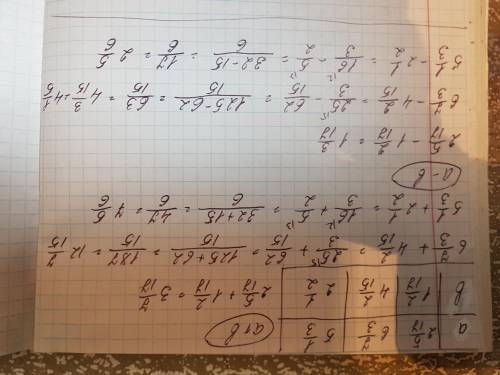 a | 2 5/17 | 8 1/3 | 5 1/3
b | 1 2/17 | 4 2/15 | 2 1/2
a+b
2 5/17 + 1 2/17 = 3 7/17
8 1/3 + 4 2/15 = 25/3 + 62/15 = 125+62/15 = 187/15 = 12 7/15
5 1/3 + 2 1/2 = 16/3 + 5/2 = 32+15/6 = 47/6 = 7 5/6
a-b
2 5/17 - 1 2/17 = 1 3/17
8 1/3 - 4 2/15 = 25/3 - 62/15 = 125-62/15 = 63/15 = 4 3/15 = 4 1/5
5 1/3 - 2 1/2 = 16/3 - 5/2 = 32-15/6 = 17/6 = 2 5/6